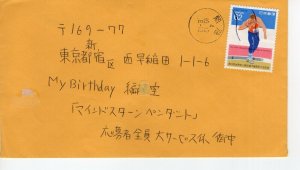 〒169-77
東京都新宿区西早稲田1-1-6
My Birthday 編 室
「マインドスターンペンダント」
応募者全員大サービス係 御中
62
日本郵便